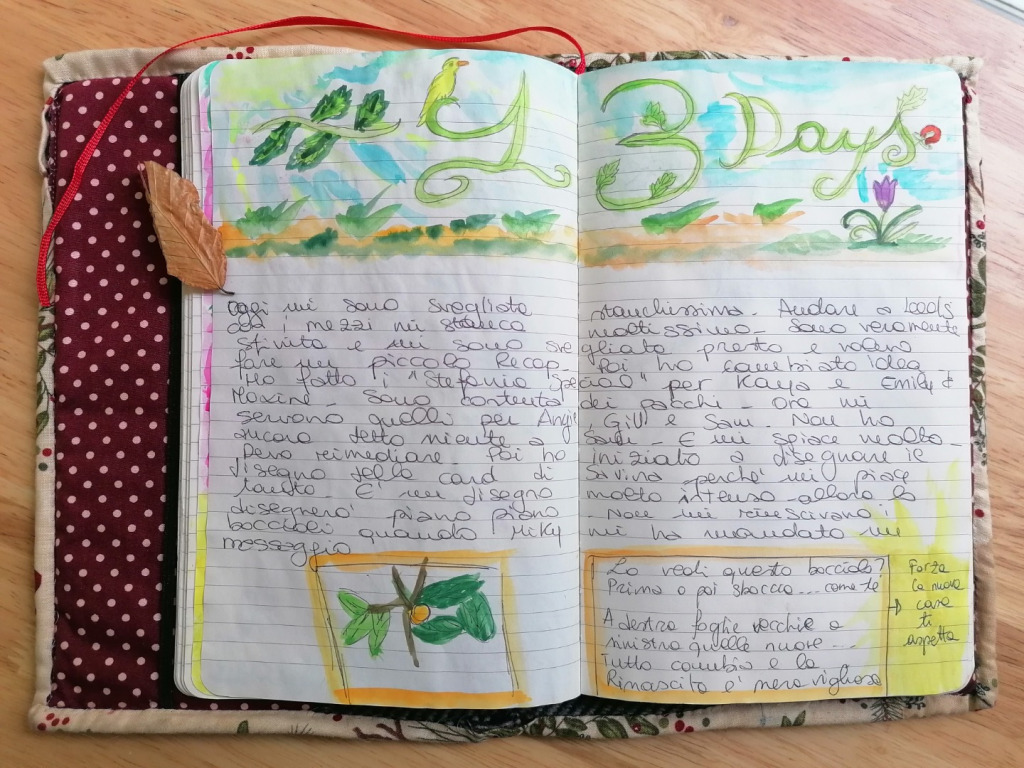 43 Days
oggi mi sono svegliata stanchissima. Andare a Leeds
coi mezzi mi stanca moltissimo. Sono veramente
sfinita e mi sono svegliata presto e volevo
fare un piccolo Recap. Poi ho cambiato idea.
Ho fatto i "Stefania Special" per Kaya e Emily &
Sono contenta dei pacchi. Ora mi
servono quelli per Angie Gill e Sam. Non ho
ancora detto niente a Sam. E mi spiace molto.
Però rimediare. Poi ho iniziato a disegnare il
disegno della card di Savina perchè mi piace
tanto. E' un disegno molto intenso allora lo
disegnerò piano piano. Non mi riuscivano i
boccioli quando Miky mi ha mandato un
messaggio
Lo vedi questo bocciolo?
Prima o poi sboccia.... come te
A destra foglie vecchie a
sinistra quelle nuove...
Tutto cambia e la
Rinascita è meravigliosa
Forza
la nuova
→ casa
ti
aspetta